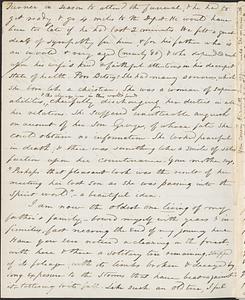 Turner in season to attend the funeral, & he had to
get ready & go 14 miles to the Depot. He would have
been too late if he had lost 2 minutes. We felt a great
deal of sympathy for him & for his father who is
an invalid & very aged (near 80) & so
upon his wife's kind & faithful attention in his decrepit
state of health. Poor Betsy! He had many sorrows, which
she bore as a christian. She was a woman of superior
abilities, cheerfully discharging her duties in all
her relations. She suffered unutterable anguish
on account of her son George of whose fate she
could obtain no information. She looked peaceful
in death, & there was something like a smile of satis
faction upon her countenance. You mother says
"Perhaps that pleasant look was the result of her
meeting her lost son as she was passing into the
Spirit world", a beautiful idea.
I am now the oldest one living of my
father's family, bowed myself with years & in-
firmities fast nearing the end of my journey here.
Have you ever noticed a clearing in the forest,
with here & there a solitary tree remaining, stripped
of its foliage, with its limbs broken & decayed by
long exposure to the storms that have beat upon it
& tottering to its fall. Like such an old tree I feel